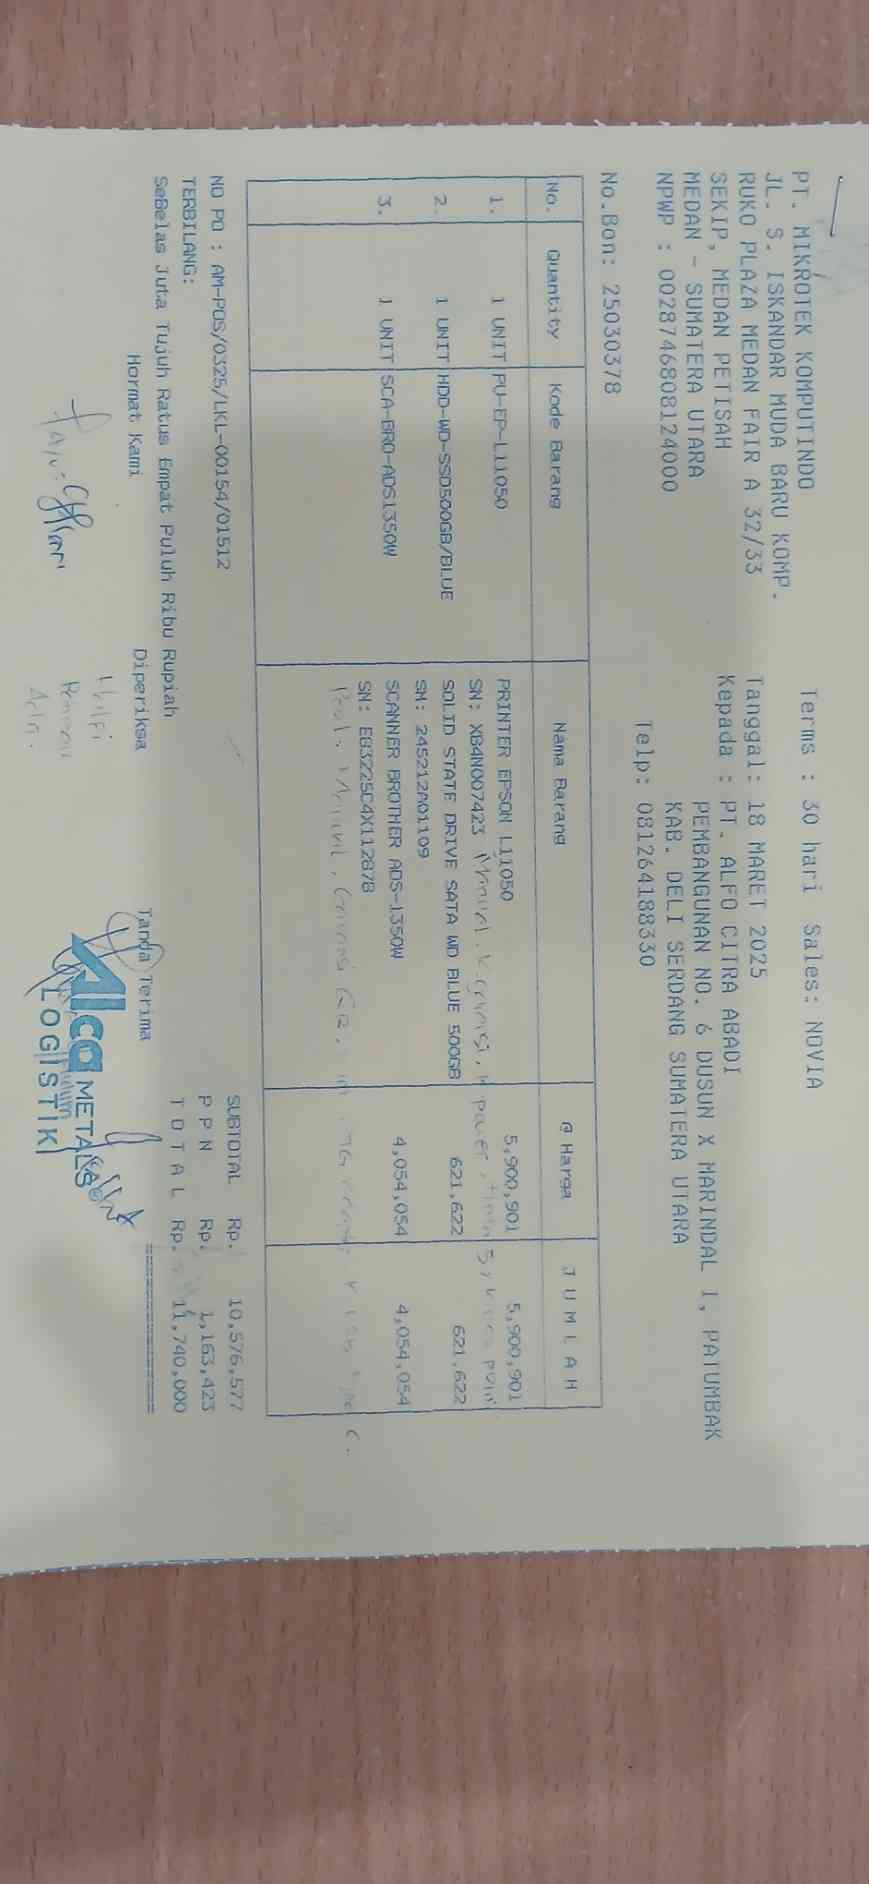 PT. MIKROTEK KOMPUTINDO
JL. S. ISKANDAR MUDA BARU KOMP.
RUKO PLAZA MEDAN FAIR A 32/33
SEKIP, MEDAN PETISAH
MEDAN - SUMATERA UTARA
NPWP : 0028746808124000
Terms : 30 hari Sales: NOVIA
Tanggal: 18 MARET 2025
Kepada : PT. ALFO CITRA ABADI
PEMBANGUNAN NO. 6 DUSUN X MARINDAL I, PATUMBAK
KAB. DELI SERDANG SUMATERA UTARA
Telp: 081264188330
No.Bon: 25030378
No. Quantity Kode Barang Nama Barang @ Harga J U M L A H
1. 1 UNIT PU-EP-L11050 PRINTER EPSON L11050 5,900,901 5,900,901
SN: XB4N007423
2. 1 UNIT HDD-WD-SSD500GB/BLUE SOLID STATE DRIVE SATA WD BLUE 500GB 621,622 621,622
SN: 245212A01109
3. 1 UNIT SCA-BRO-ADS1350W SCANNER BROTHER ADS-1350W 4,054,054 4,054,054
SN: E83225C4X112878
NO PO : AM-POS/0325/LKL-00154/01512
SUBTOTAL Rp. 10,576,577
TERBILANG:
P P N Rp. 1,163,423
SeBelas Juta Tujuh Ratus Empat Puluh Ribu Rupiah
T O T A L Rp. 11,740,000
Hormat Kami Diperiksa Tanda Terima
Alca METALS
LOGISTIK